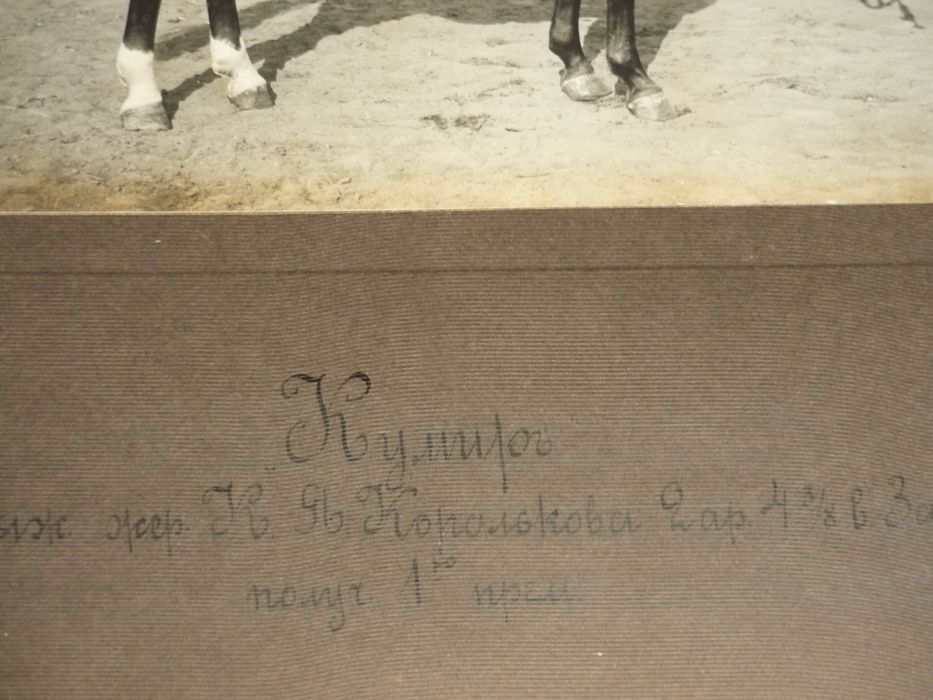 "Кумиръ
ыж. жер. К. Я. Королькова 2 ар. 4 3/8 в.
получ 1ю прем